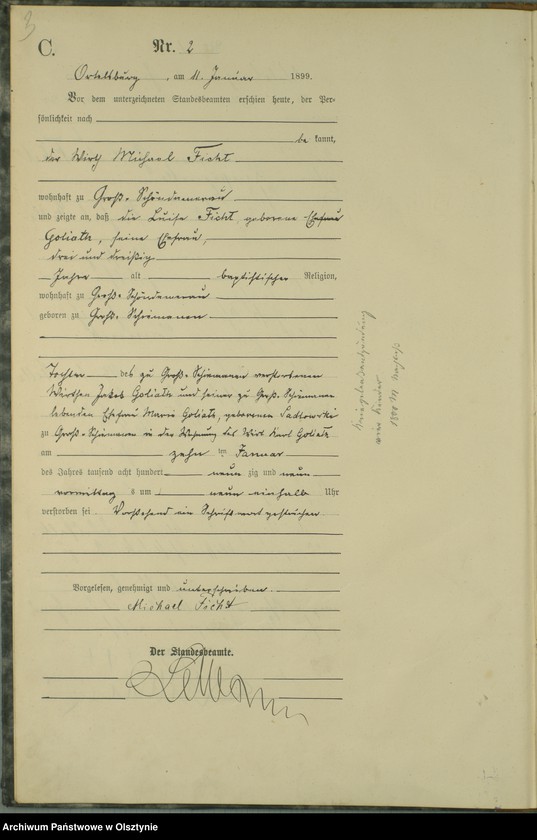 3
C.
Nr. 2
Ortelsburg, am 11. Januar 1899.
Vor dem unterzeichneten Standesbeamten erschien heute, der Per-
sönlichkeit nach
be kannt,
der Wirth Michael Ficht
wohnhaft zu Groß-Schöndamerau
und zeigte an, daß die Luise Ficht geborene Ehefrau
Goliath, seine Ehefrau,
drei und dreißig
Jahre alt baptistischer Religion,
wohnhaft zu Groß-Schöndamerau
geboren zu Groß-Schiemanen
Tochter des zu Groß-Schiemanen verstorbenen
Wirthen Jakob Goliath und seiner zu Groß-Schiemanen
lebenden Ehefrau Marie Goliath, geborenen Sadlowski
zu Groß-Schiemanen in der Wohnung des Wirt Karl Goliath
am zehn ten Januar
des Jahres tausend acht hundert neun zig und neun
vormittags um neun einhalb Uhr
verstorben sei. Vorstehend ein Schriftwort gestrichen
Vorgelesen, genehmigt und unterschrieben.
Michael Ficht
Der Standesbeamte.
vier Kinder
Archiwum Państwowe w Olsztynie